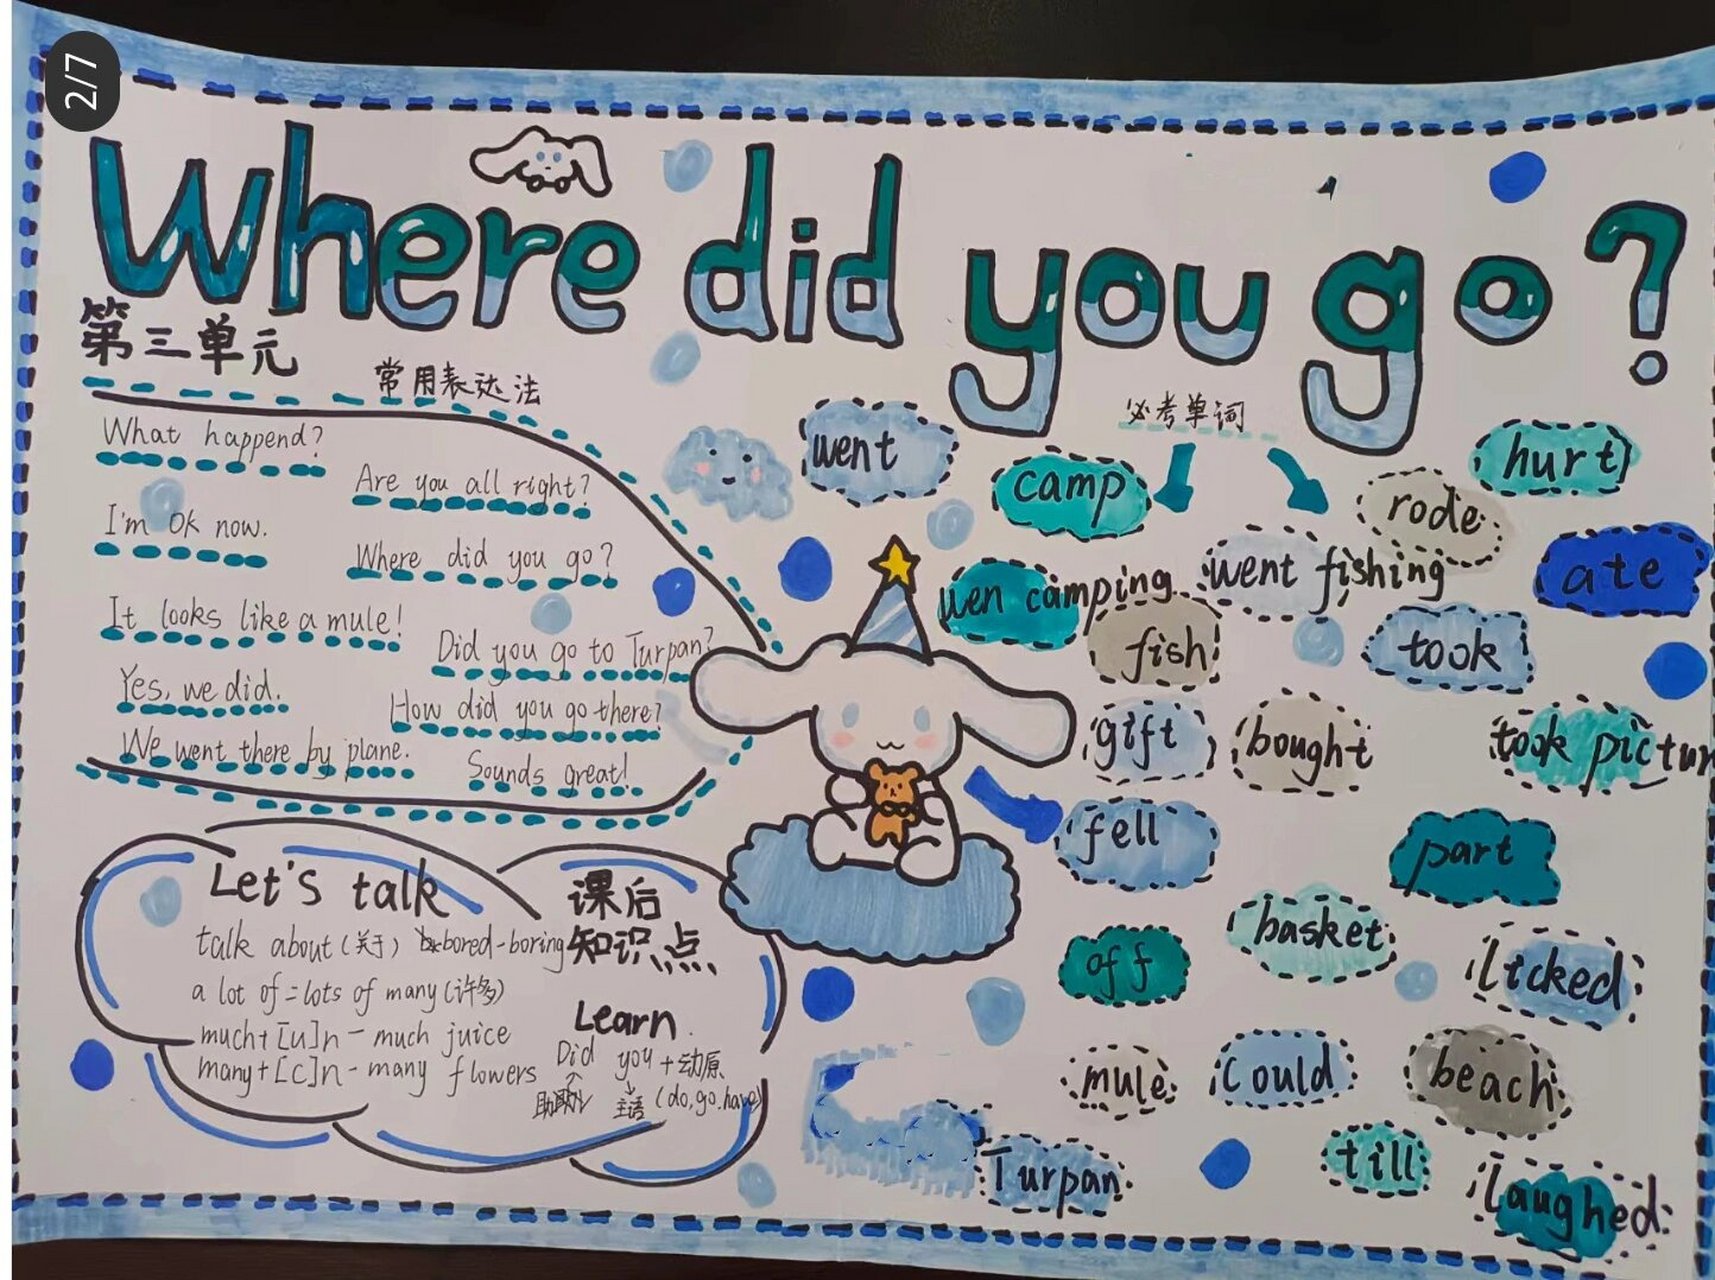 2/7
Where did you go?
第三单元
常用表达法
What happend?
Are you all right?
I'm Ok now.
Where did you go?
It looks like a mule!
Did you go to Turpan?
Yes, we did.
How did you go there?
We went there by plane.
Sounds great!
Let's talk
talk about (关于) bored-boring
a lot of = lots of many (许多)
much+[u]n - much juice
many+[c]n - many flowers
课后
知识点
Learn
Did you +动原
主语 (do, go, have)
必考单词
went
camp
rode
hurt
wen camping
went fishing
ate
fish
took
gift
bought
took pictur
fell
part
off
basket
licked
mule
could
beach
Turpan
till
laughed